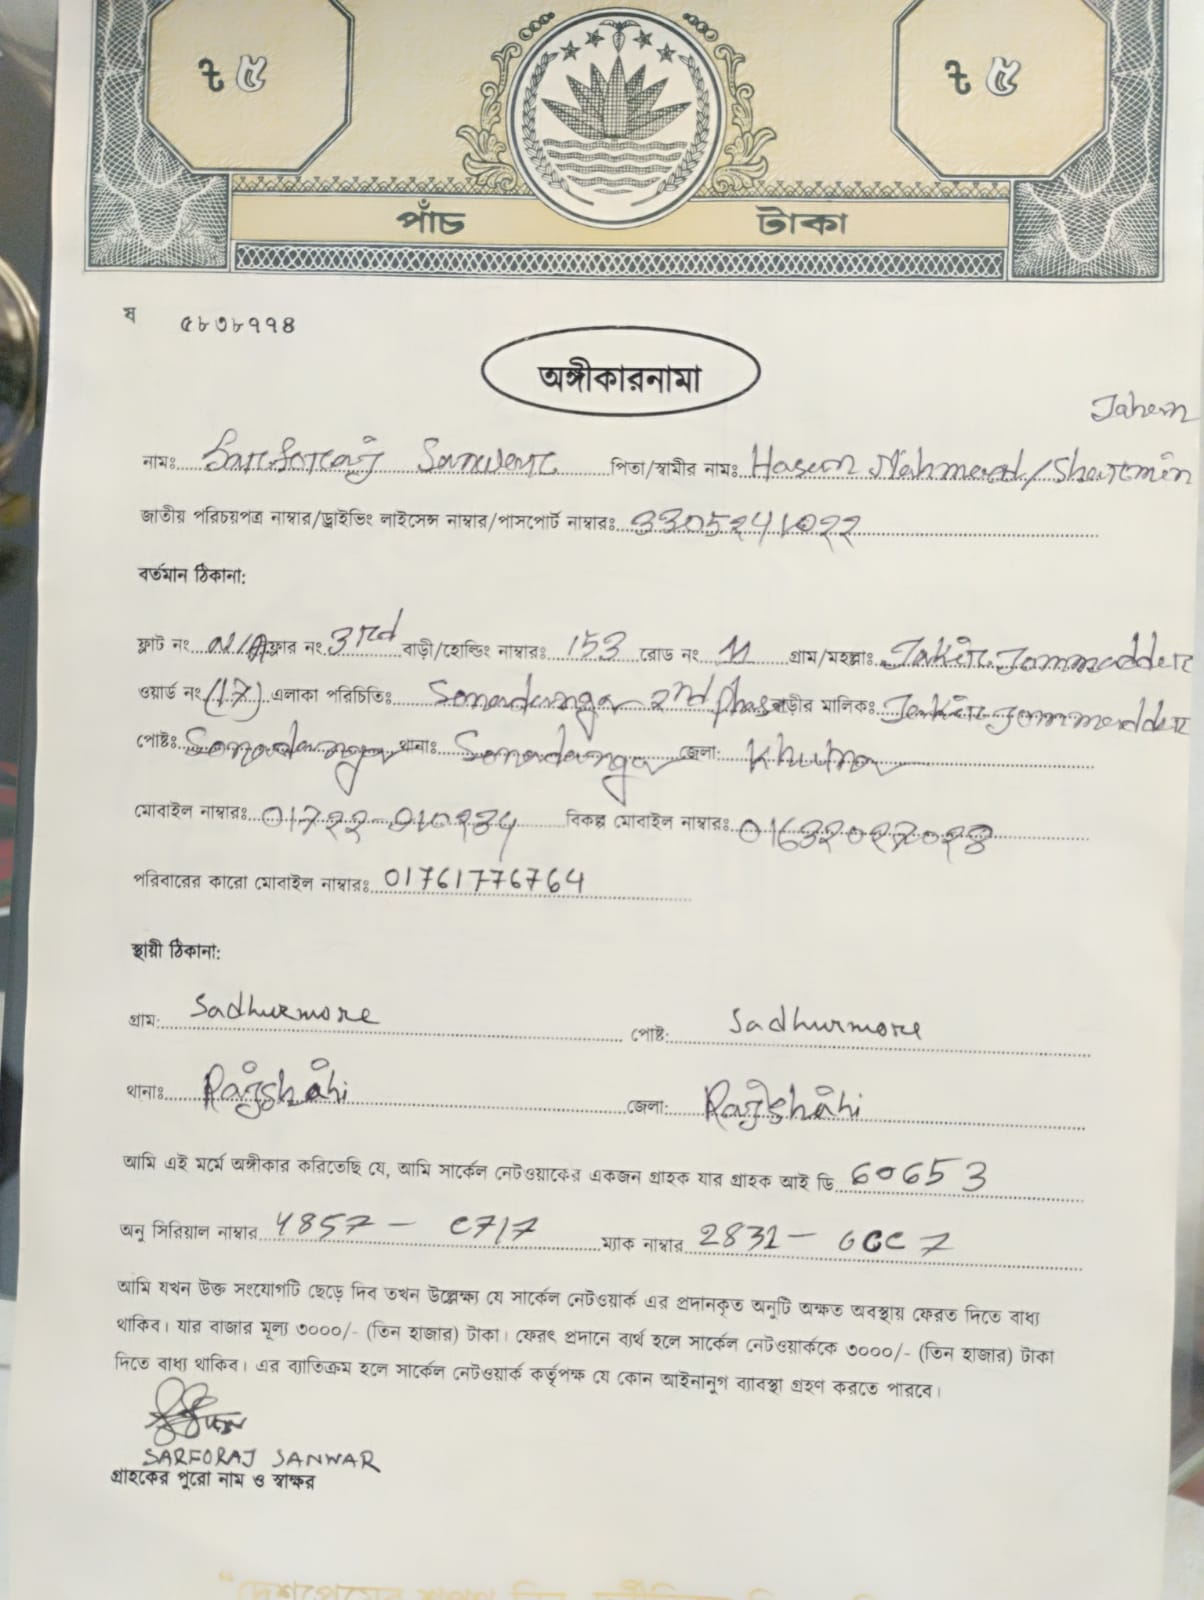 ৳ ৫ ৳ ৫
পাঁচ টাকা
ষ ৫৮৩৮৭৭৪
অঙ্গীকারনামা
Jahan
নামঃ Sarforaj Sanwar পিতা/স্বামীর নামঃ Hasan Mahmood / Sharmin
জাতীয় পরিচয়পত্র নাম্বার/ড্রাইভিং লাইসেন্স নাম্বার/পাসপোর্ট নাম্বারঃ
বর্তমান ঠিকানা:
ফ্লাট নং N/A ফ্লোর নং 3rd বাড়ী/হোল্ডিং নাম্বারঃ 153 রোড নং 11 গ্রাম/মহল্লাঃ Jakir Jommadder
ওয়ার্ড নং (17) এলাকা পরিচিতিঃ Sonadanga 2nd phase বাড়ীর মালিকঃ Jakir Jommadder
পোষ্টঃ Sonadanga থানাঃ Sonadanga জেলা: Khulna
মোবাইল নাম্বারঃ বিকল্প মোবাইল নাম্বারঃ
পরিবারের কারো মোবাইল নাম্বারঃ 01761776764
স্থায়ী ঠিকানা:
গ্রাম: Sadhurmore পোষ্ট: Sadhurmore
থানাঃ Rajshahi জেলা: Rajshahi
আমি এই মর্মে অঙ্গীকার করিতেছি যে, আমি সার্কেল নেটওয়ার্কের একজন গ্রাহক যার গ্রাহক আই ডি 60653
অনু সিরিয়াল নাম্বার 4857 - C717 ম্যাক নাম্বার 2831 -
আমি যখন উক্ত সংযোগটি ছেড়ে দিব তখন উল্লেক্ষ্য যে সার্কেল নেটওয়ার্ক এর প্রদানকৃত অনুটি অক্ষত অবস্থায় ফেরত দিতে বাধ্য
থাকিব। যার বাজার মূল্য ৩০০০/- (তিন হাজার) টাকা। ফেরৎ প্রদানে ব্যর্থ হলে সার্কেল নেটওয়ার্ককে ৩০০০/- (তিন হাজার) টাকা
দিতে বাধ্য থাকিব। এর ব্যাতিক্রম হলে সার্কেল নেটওয়ার্ক কর্তৃপক্ষ যে কোন আইনানুগ ব্যাবস্থা গ্রহণ করতে পারবে।
SARFORAJ SANWAR
গ্রাহকের পুরো নাম ও স্বাক্ষর